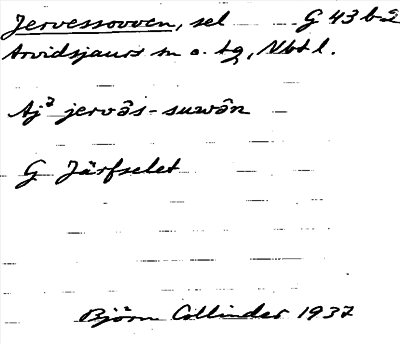 Jervessovven, sel G 43 b 2
Arvidsjaurs sn o. tg, Nbtl.
Aj² jervâs-suwân
G Järfselet
Björn Collinder 1937